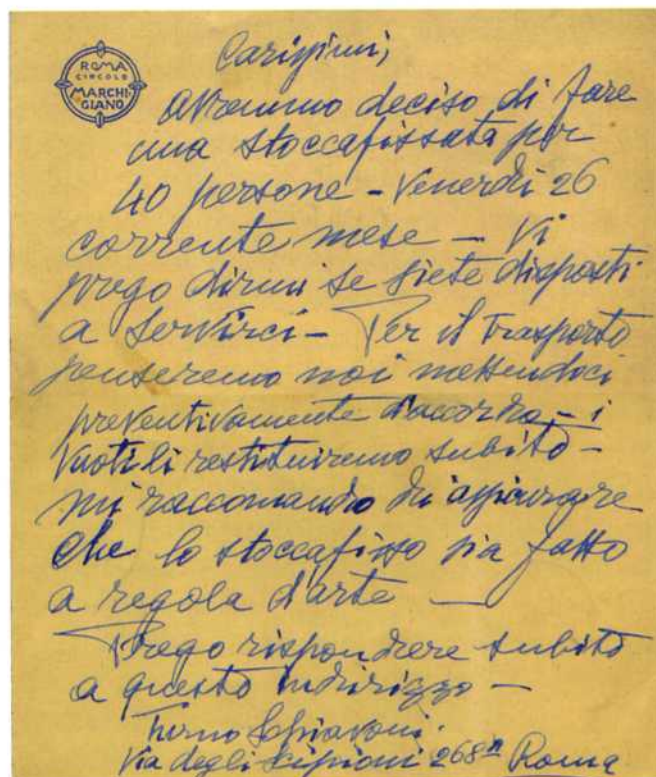 ROMA
CIRCOLO
MARCHI-
GIANO
Carissimi,
avremmo deciso di fare
una stoccafissata per
40 persone - Venerdì 26
corrente mese - Vi
prego dirmi se siete disposti
a servirci - Per il Trasporto
penseremo noi mettendoci
preventivamente d'accordo - i
Vuoti li restituiremo subito -
mi raccomando di assicurare
che lo stoccafisso sia fatto
a regola d'arte —
Prego rispondere subito
a questo indirizzo -
Schiavoni.
Via degli Scipioni 268 Roma